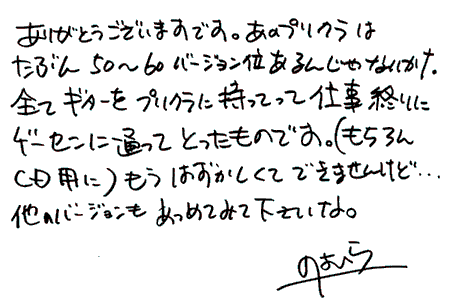 ありがとうございますです。あのプリクラは
たぶん50〜60バージョン位あるんじゃないかナ。
全てギターをプリクラに持ってって仕事終りに
ゲーセンに通ってとったものです。(もちろん
CD用に)もうはずかしくてできませんけど…
他のバージョンもあつめてみて下さいな。
のはら